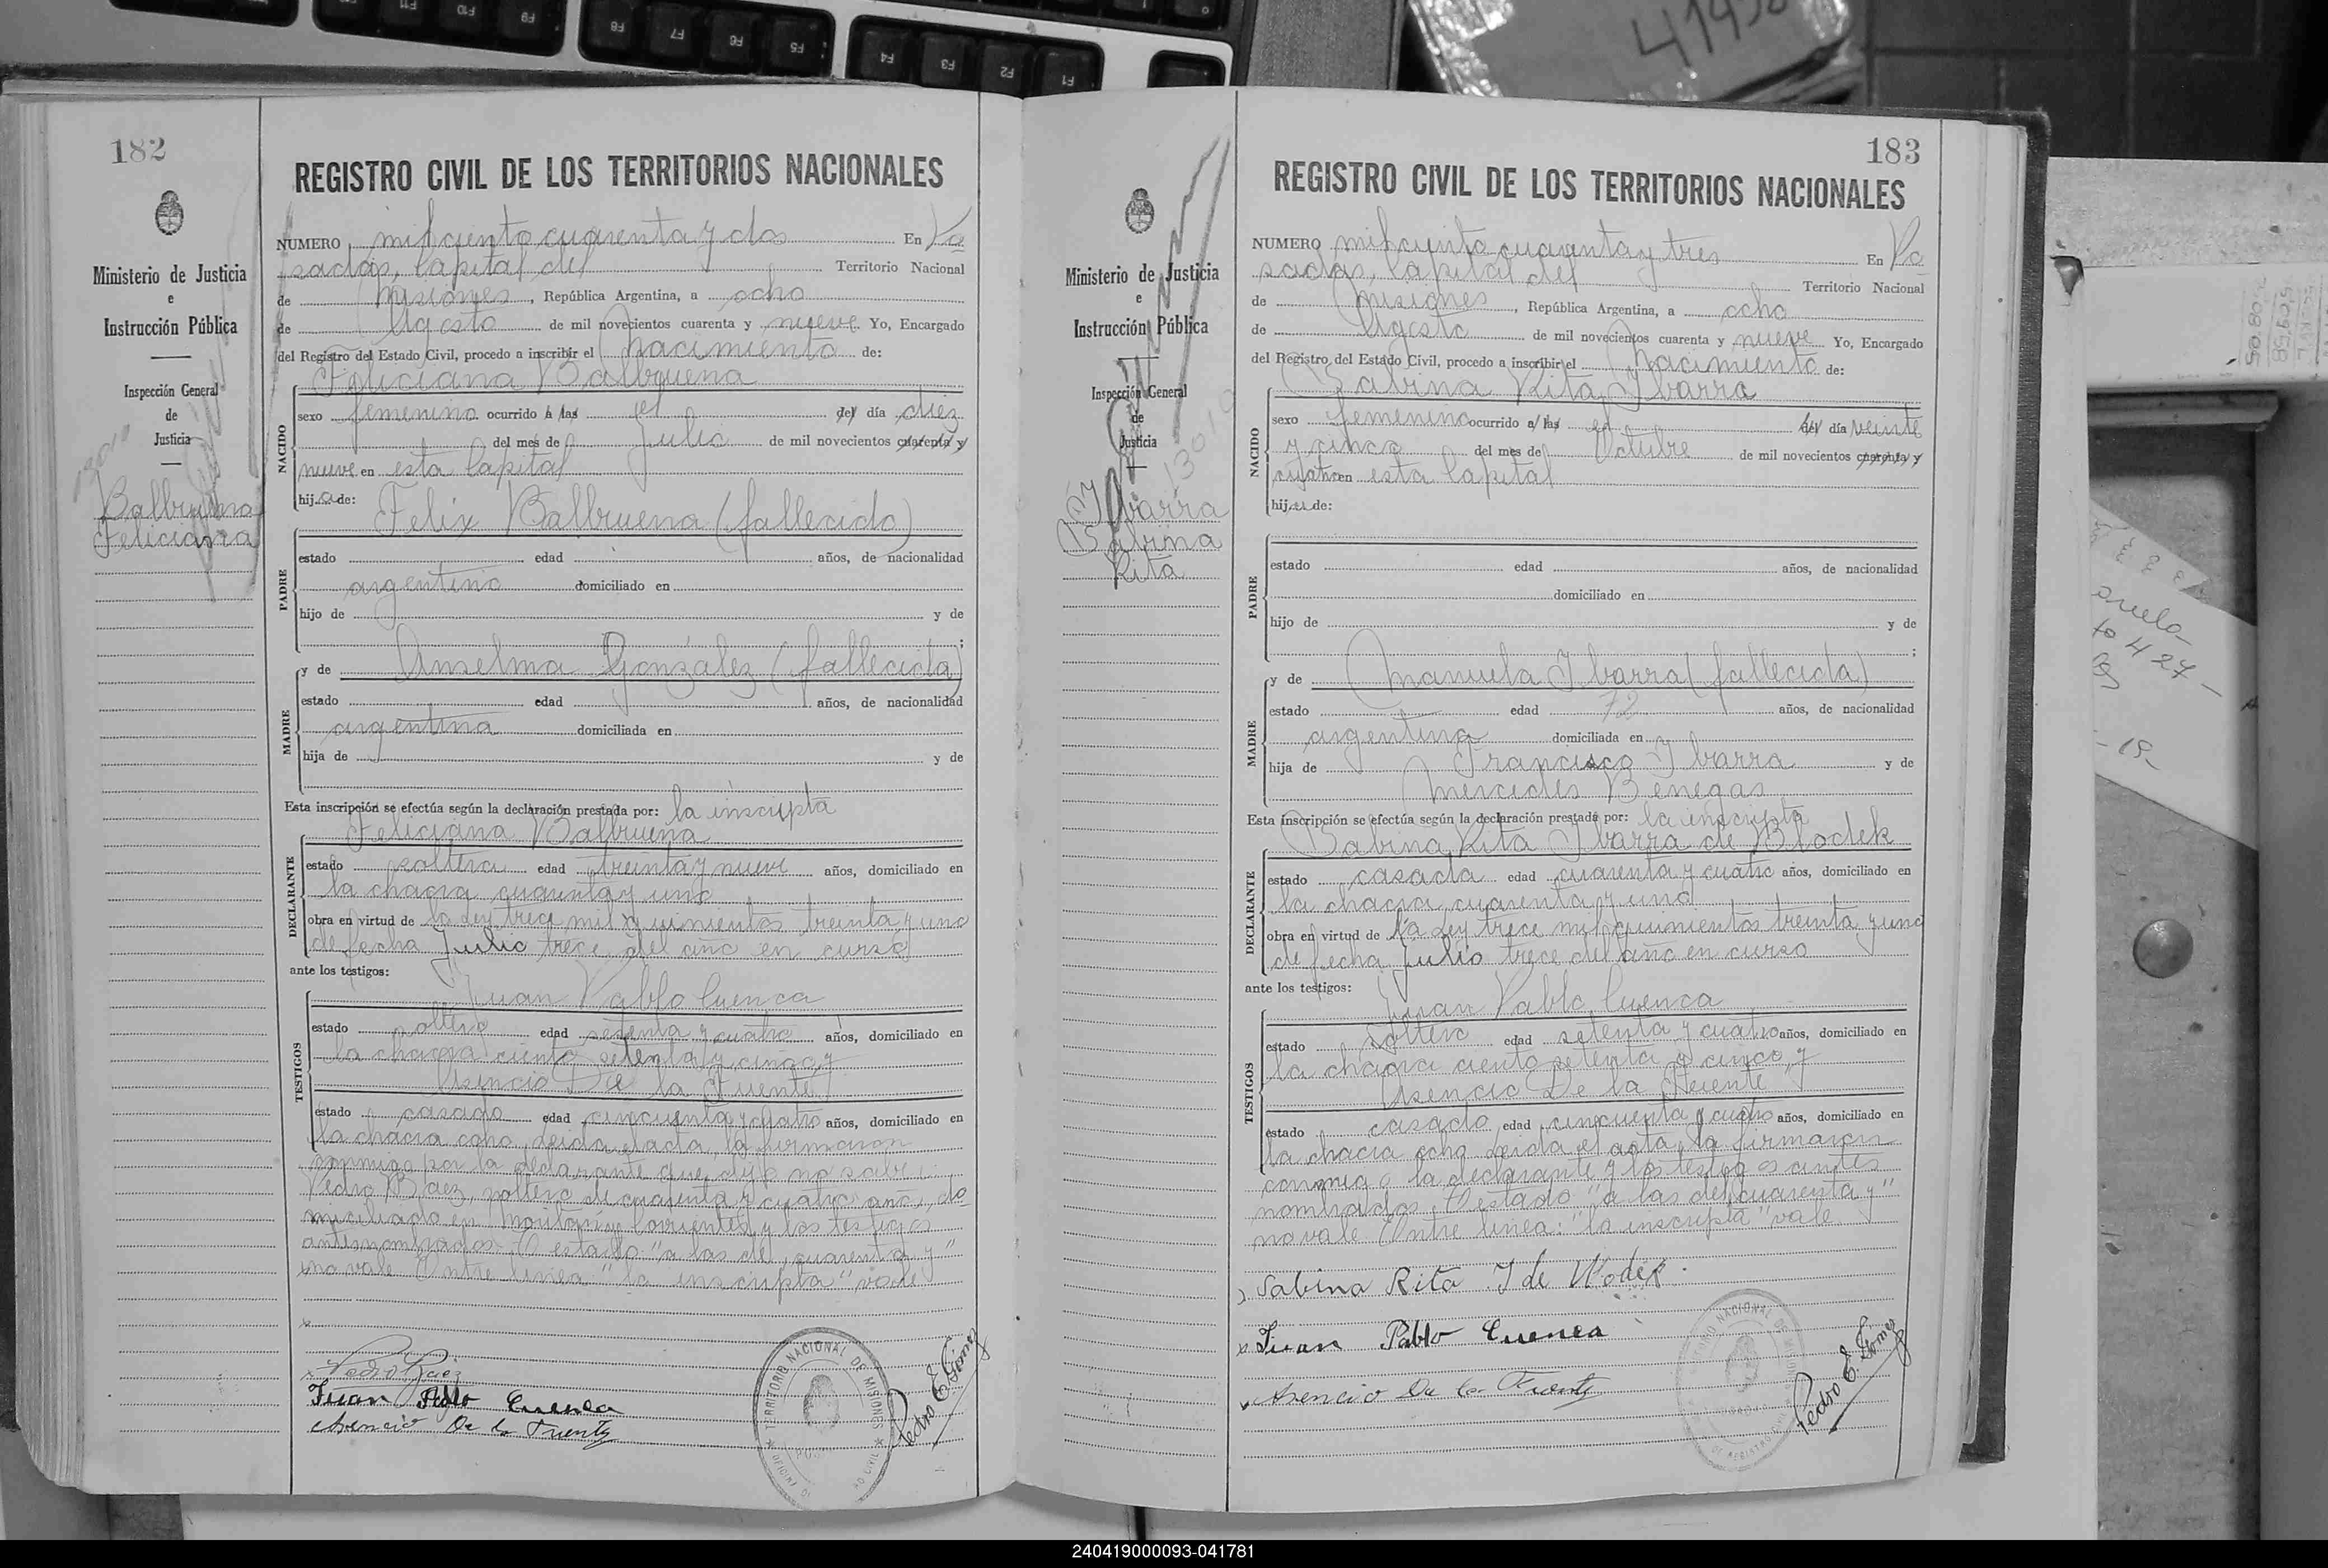 182
REGISTRO CIVIL DE LOS TERRITORIOS NACIONALES
Ministerio de Justicia
e
Instrucción Pública
Inspección General
de
Justicia
Balbuena
Feliciana
NUMERO mil ciento cuarenta y dos En Po
sadas, Capital del Territorio Nacional
de Misiones, República Argentina, a ocho
de Agosto de mil novecientos cuarenta y nueve Yo, Encargado
del Registro del Estado Civil, procedo a inscribir el nacimiento de:
Feliciana Balbuena
NACIDO
sexo femenino ocurrido a las el del día diez
del mes de Julio de mil novecientos cuarenta y
nueve en esta Capital
hija de:
Felix Balbuena (fallecido)
PADRE
estado edad años, de nacionalidad
argentino domiciliado en
hijo de y de
;
y de Anselma González (fallecida)
MADRE
estado edad años, de nacionalidad
argentina domiciliada en
hija de y de
Esta inscripción se efectúa según la declaración prestada por: la inscripta
Feliciana Balbuena
DECLARANTE
estado soltera edad treinta y nueve años, domiciliado en
la chacra cuarenta y uno
obra en virtud de la Ley trece mil quinientos treinta y uno
de fecha Julio trece del año en curso
ante los testigos:
Juan Pablo Cuenca
TESTIGOS
estado soltero edad setenta y cuatro años, domiciliado en
la chacra ciento setenta y cinco y
Asencio De la Fuente
estado casado edad cincuenta y cuatro años, domiciliado en
la chacra ocho. Leida el acta, la firmaron
conmigo por la declarante que dijo no saber:
Pedro Baez, soltero de cuarenta y cuatro años, do
miciliado en Corrientes y los testigos
antenombrados. O estado "a las del, cuarenta y"
no vale. Entre linea: "la inscripta" vale.
Pedro Baez
Juan Pablo Cuenca
Asencio De la Fuente
TERRITORIO NACIONAL DE MISIONES
Pedro E. Gomez
183
REGISTRO CIVIL DE LOS TERRITORIOS NACIONALES
Ministerio de Justicia
e
Instrucción Pública
Inspección General
de
Justicia
Ybarra
Sabina
Rita
NUMERO mil ciento cuarenta y tres En Po
sadas, Capital del Territorio Nacional
de Misiones, República Argentina, a ocho
de Agosto de mil novecientos cuarenta y nueve Yo, Encargado
del Registro del Estado Civil, procedo a inscribir el nacimiento de:
Sabina Rita Ybarra
NACIDO
sexo femenino ocurrido a las el del día veinte
y cinco del mes de Octubre de mil novecientos cuarenta y
cuatro en esta Capital
hija de:
PADRE
estado edad años, de nacionalidad
domiciliado en
hijo de y de
;
y de Manuela Ybarra (fallecida)
MADRE
estado edad 72 años, de nacionalidad
argentina domiciliada en
hija de Francisco Ybarra y de
Mercedes Benegas
Esta inscripción se efectúa según la declaración prestada por: la inscripta
Sabina Rita Ybarra de Blodek
DECLARANTE
estado casada edad cuarenta y cuatro años, domiciliado en
la chacra cuarenta y uno
obra en virtud de la Ley trece mil quinientos treinta y uno
de fecha Julio trece del año en curso
ante los testigos:
Juan Pablo Cuenca
TESTIGOS
estado soltero edad setenta y cuatro años, domiciliado en
la chacra ciento setenta y cinco y
Asencio De la Fuente y
estado casado edad cincuenta y cuatro años, domiciliado en
la chacra ocho. Leida el acta, la firmaron
conmigo la declarante y los testigos antes
nombrados. O estado "a las del, cuarenta y"
no vale. Entre linea: "la inscripta" vale.
Sabina Rita Y de Wodek.
Juan Pablo Cuenca
Asencio De la Fuente
Pedro E. Gomez
F8 F7 F6 F5 F4 F3 F2 F1
240419000093-041781